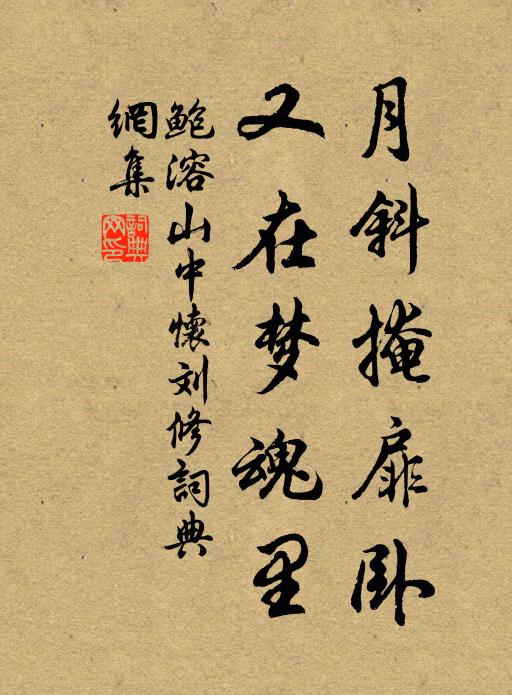 月斜掩扉卧
又在梦魂里
鲍溶山中懷刘修詞典
網集
詞典网印